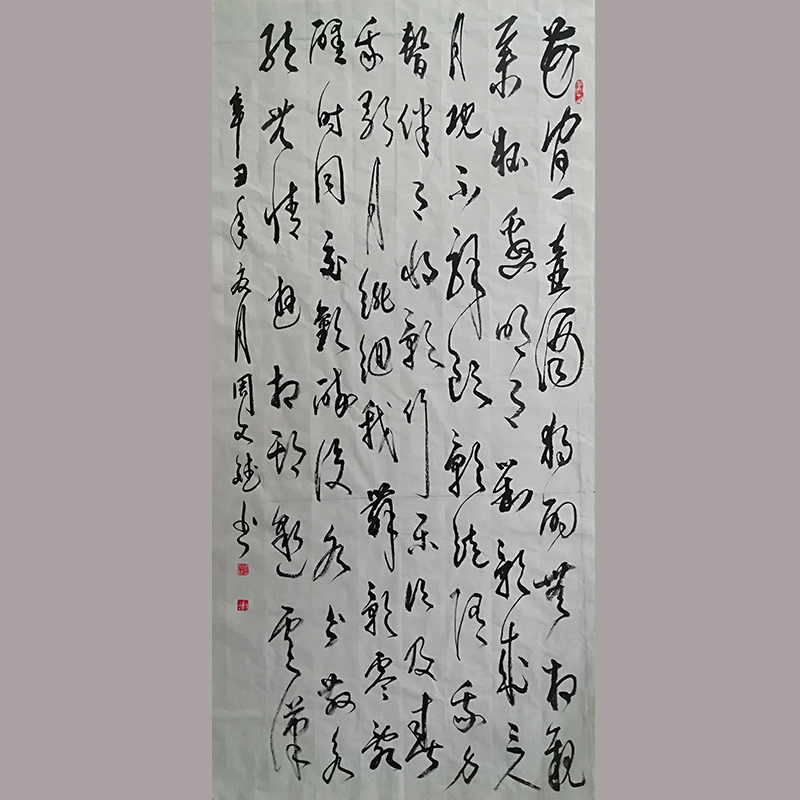 花間一壺酒獨酌無相親
舉杯邀明月對影成三人
月既不解飲影徒隨我身
暫伴月將影行樂須及春
我歌月徘徊我舞影零亂
醒時同交歡醉後各分散永
結無情遊相期邈雲漢
辛丑年夏月周文斌书